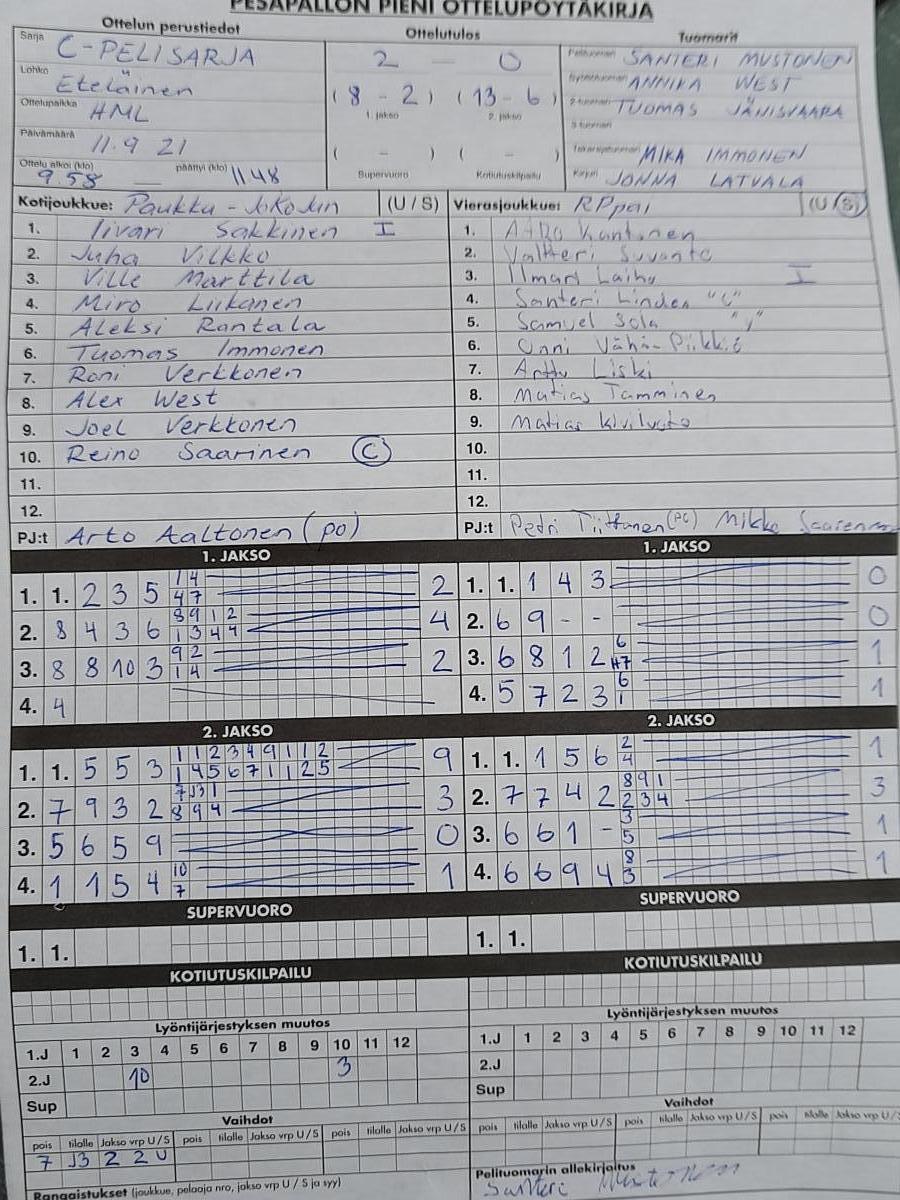 PESÄPALLON PIENI OTTELUPÖYTÄKIRJA
Ottelun perustiedot
Sarja C-PELISARJA
Lohko Eteläinen
Ottelupaikka HML
Päivämäärä 11.9 21
Ottelu alkoi (klo) 9.58 päättyi (klo) 1148
Ottelutulos
2 - 0
(8 - 2) (13 - 6)
1. jakso 2. jakso
( - ) ( - )
Supervuoro Kotiutuskilpailu
Tuomarit
Pelituomari SANTERI MUSTONEN
Syöttötuomari ANNIKA WEST
2-tuomari TUOMAS JÄNISVAARA
3-tuomari
Takarajatuomari MIKA IMMONEN
Kirjuri JONNA LATVALA
Kotijoukkue: Paukku-Jokohin (U / S)
1. Iivari Sakkinen I
2. Juha Vilkko
3. Ville Marttila
4. Miro Liikanen
5. Aleksi Rantala
6. Tuomas Immonen
7. Roni Verkkonen
8. Alex West
9. Joel Verkkonen
10. Reino Saarinen C
11.
12.
PJ:t Arto Aaltonen (po)
Vierasjoukkue: RPpai (U / S)
1. Kantonen
2. Valtteri Suvanto
3. Ilmari Laiho I
4. Santeri Linden "C"
5. Samuel Sola "y"
6. Onni Vähä-Piikkiö
7. Arttu Liski
8. Matias Tamminen
9. Matias Kiviluoto
10.
11.
12.
PJ:t Petri Tiittanen (PC) Mikko
1. JAKSO
1. 1. 2 3 5 1 4 2
4 7
2. 8 4 3 6 8 9 1 2 4
1 3 4 4
3. 8 8 10 3 9 2 2
1 4
4. 4
1. JAKSO
1. 1. 1 4 3 0
2. 6 9 - - 0
3. 6 8 1 2 6 1
4. 5 7 2 3 6 1
1
2. JAKSO
1. 1. 5 5 3 1 1 2 3 4 9 1 1 2 9
1 4 5 6 7 1 1 2 5
2. 7 9 3 2 7 J3 1 3
8 9 4
3. 5 6 5 9 0
4. 1 1 5 4 10 1
7
2. JAKSO
1. 1. 1 5 6 2 1
4
2. 7 7 4 2 8 9 1 3
2 3 4
3. 6 6 1 - 3 1
5
4. 6 6 9 4 8 1
3
SUPERVUORO
1. 1.
SUPERVUORO
1. 1.
KOTIUTUSKILPAILU
KOTIUTUSKILPAILU
Lyöntijärjestyksen muutos
1.J 1 2 3 4 5 6 7 8 9 10 11 12
2.J 10 3
Sup
Lyöntijärjestyksen muutos
1.J 1 2 3 4 5 6 7 8 9 10 11 12
2.J
Sup
Vaihdot
pois tilalle Jakso vrp U / S pois tilalle Jakso vrp U / S pois tilalle Jakso vrp U / S
7 J3 2 2 U
Vaihdot
pois tilalle Jakso vrp U / S pois tilalle Jakso vrp U / S pois tilalle Jakso vrp U / S
Rangaistukset (joukkue, pelaaja nro, jakso vrp U / S ja syy)
Pelituomarin allekirjoitus
Santeri Mustonen